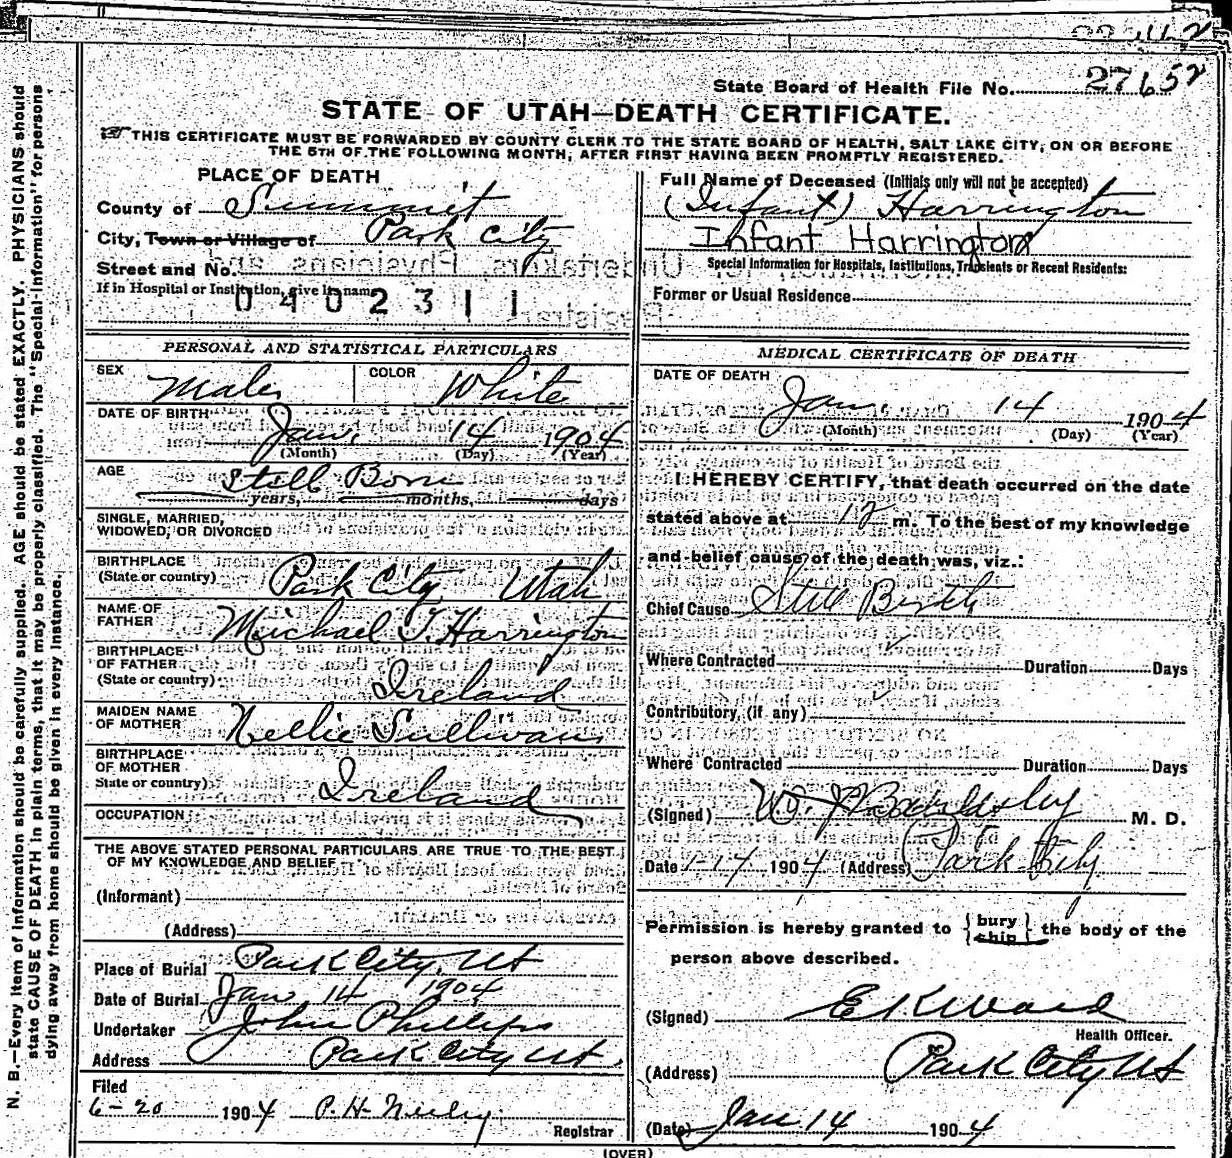 State Board of Health File No. 27652
STATE OF UTAH—DEATH CERTIFICATE.
THIS CERTIFICATE MUST BE FORWARDED BY COUNTY CLERK TO THE STATE BOARD OF HEALTH, SALT LAKE CITY, ON OR BEFORE
THE 5TH OF THE FOLLOWING MONTH, AFTER FIRST HAVING BEEN PROMPTLY REGISTERED.
PLACE OF DEATH
County of Summit
City, Town or Village of Park City
Street and No.
If in Hospital or Institution, give its name
0402311
Full Name of Deceased (Initials only will not be accepted)
(Infant) Harrington
Infant Harrington
Special Information for Hospitals, Institutions, Transients or Recent Residents:
Former or Usual Residence
PERSONAL AND STATISTICAL PARTICULARS
SEX Male COLOR White
DATE OF BIRTH Jan. 14 1904
(Month) (Day) (Year)
AGE Still Born
years, months, days
SINGLE, MARRIED,
WIDOWED, OR DIVORCED
BIRTHPLACE
(State or country) Park City Utah
NAME OF
FATHER Michael T. Harrington
BIRTHPLACE
OF FATHER
(State or country) Ireland
MAIDEN NAME
OF MOTHER Nellie Sullivan
BIRTHPLACE
OF MOTHER
State or country) Ireland
OCCUPATION
THE ABOVE STATED PERSONAL PARTICULARS ARE TRUE TO THE BEST
OF MY KNOWLEDGE AND BELIEF
(Informant)
(Address)
Place of Burial Park City, Ut
Date of Burial Jan 14 1904
Undertaker John Phillips
Address Park City Ut.
Filed
6-20 1904 P. H.
Registrar
MEDICAL CERTIFICATE OF DEATH
DATE OF DEATH
Jan. 14 1904
(Month) (Day) (Year)
I HEREBY CERTIFY, that death occurred on the date
stated above at 12 m. To the best of my knowledge
and belief cause of the death was, viz.:
Chief Cause Still Birth
Where Contracted Duration Days
Contributory, (if any)
Where Contracted Duration Days
(Signed) M. D.
Date 1-14 1904 (Address) Park City
Permission is hereby granted to { bury
ship } the body of the
person above described.
(Signed) E K Ward
Health Officer.
(Address) Park City Ut
(Date) Jan 14 1904
(OVER)
N. B.—Every item of information should be carefully supplied. AGE should be stated EXACTLY. PHYSICIANS should
state CAUSE OF DEATH in plain terms, that it may be properly classified. The "Special Information" for persons
dying away from home should be given in every instance.